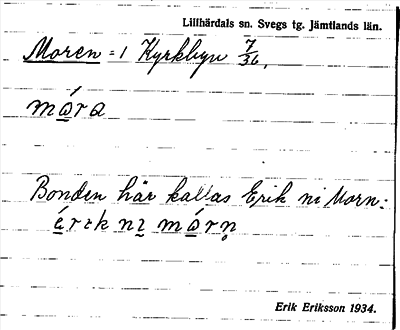 Lillhärdals sn. Svegs tg. Jämtlands län.
Moren = 1 Kyrkbyn 7/36,
mó̲ra
Bonden här kallas Erik ni Morn:
é̲rɩk nɩ̲ mó̲rn̥
Erik Eriksson 1934.